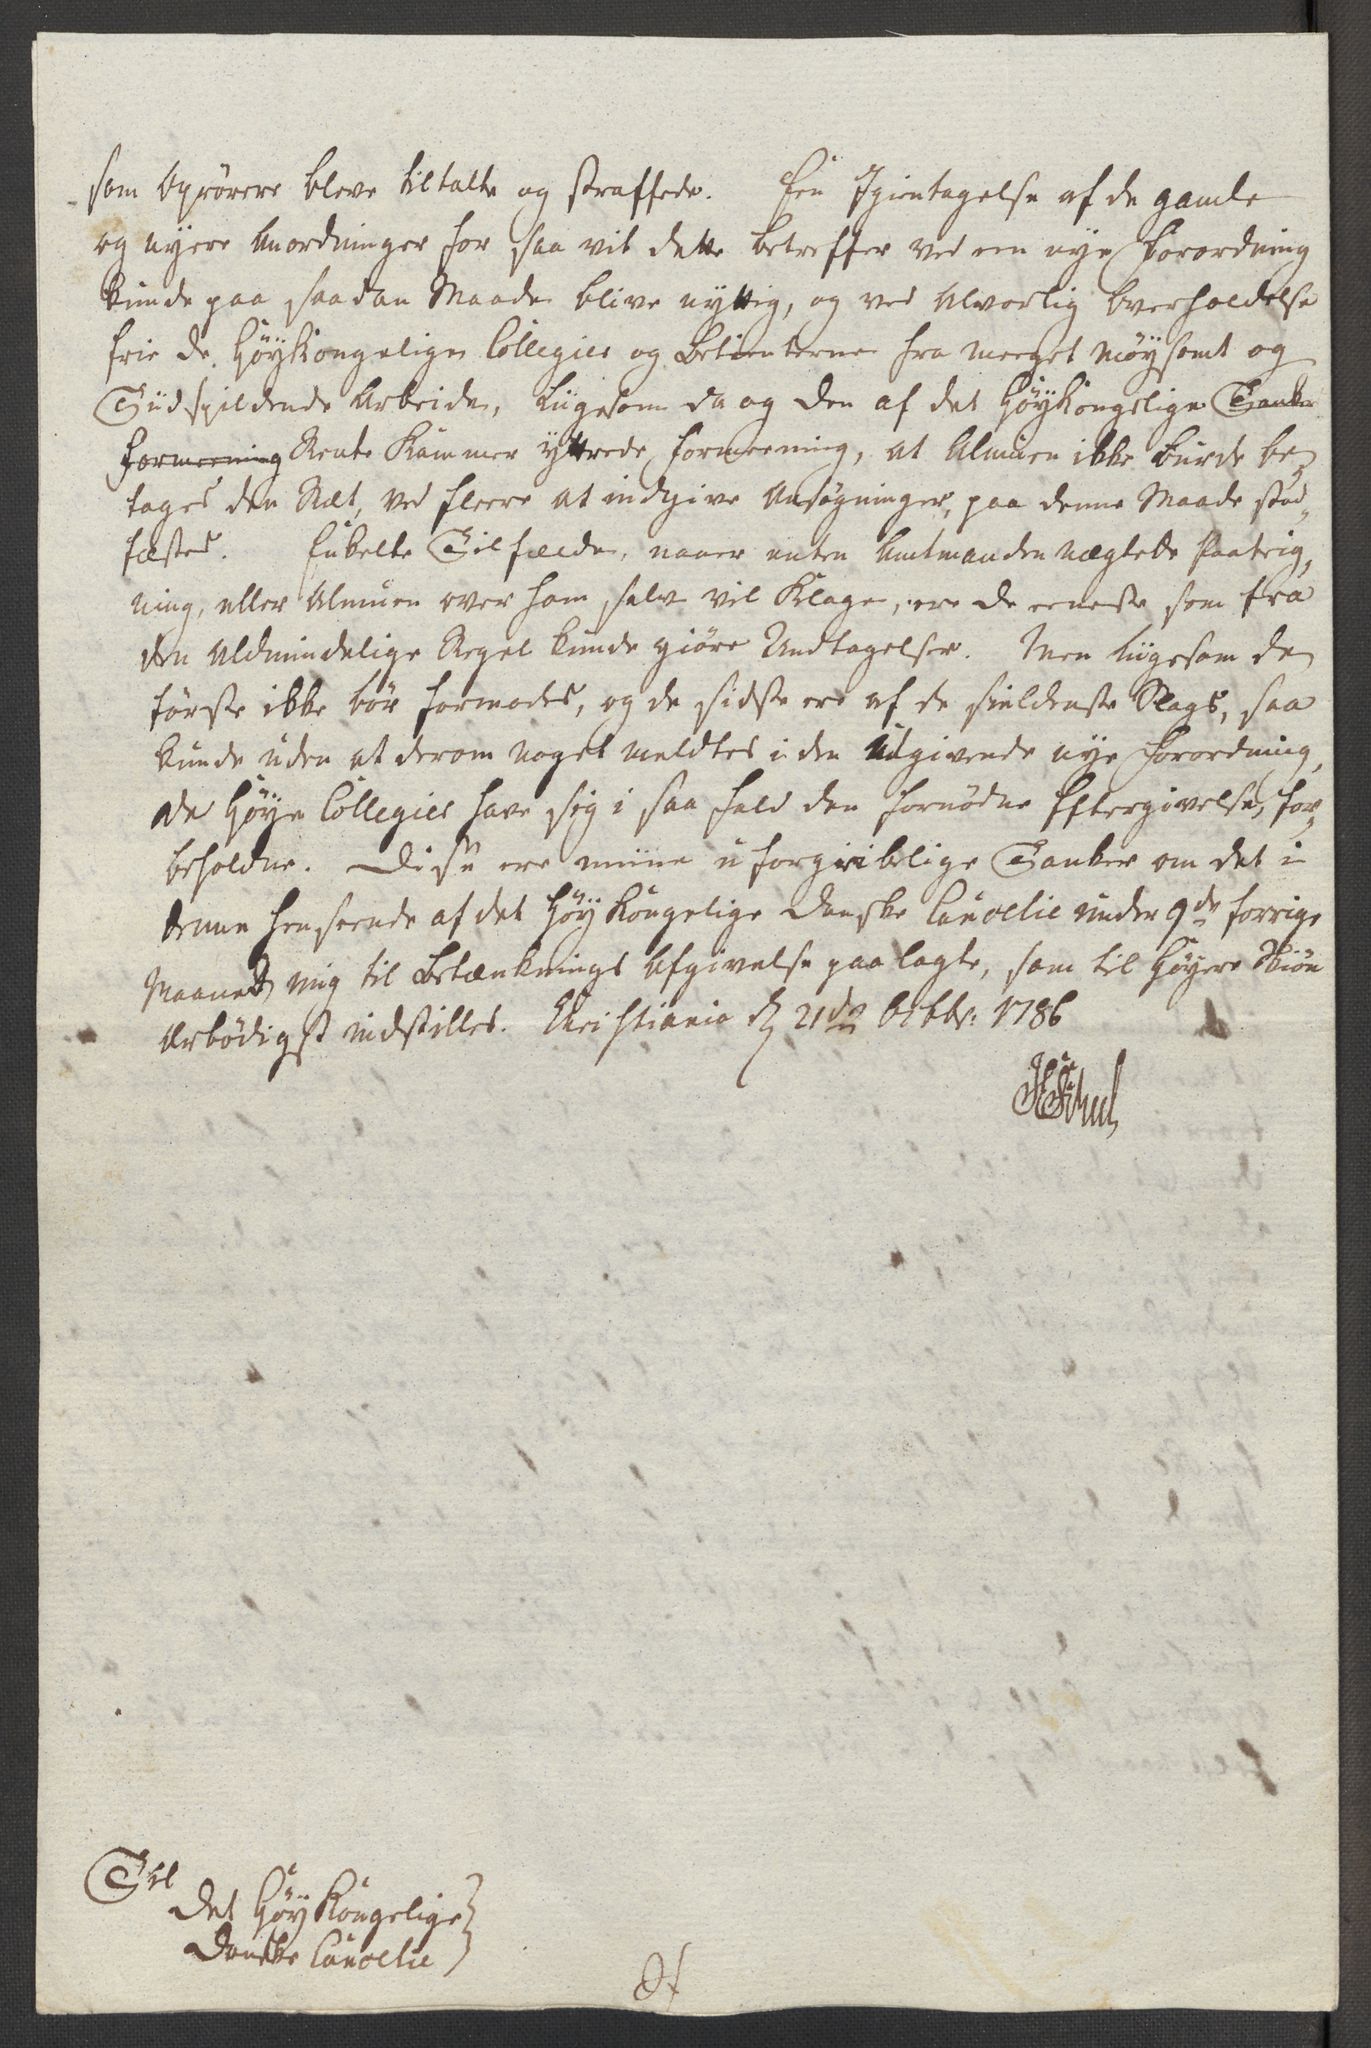 som Oprörere bleve tiltalte og straffede. Een Igientagelse af de gamle
og nyere Anordninger for saa vit dette betreffer ved een nye Forordning
kunde paa saadan Maade blive nyttig, og ved Alvorlig Overholdelse
frie de HöyKongelige Collegier og Betienterne fra meeget möysomt og
Tiidspildende Arbeide, liigesom da og den af det HöyKongelige Tanke
Formeening Rente Kammer yttrede Formeening, at Almuen ikke burde be-
tages den Ræt, ved fleere at indgive Ansögninger, paa denne Maade stad-
fæstes. Enkelte Tilfælde, naaer enten Amtmanden nægtede Paateig-
ning, eller Almuen over ham selv vil klage, ere de eeneste som fra
den Aldmindelige Regel kunde giöre Undtagelser. Men liigesom de
förste ikke bör formodes, og de sidste ere af de sieldneste Slags, saa
kunde uden at derom noget meldtes i den udgivende nye Forordning,
de Höye Collegier have sig i saa fald den fornödne Eftergivelse, for-
beholdne. Disse ere miine uforgribelige Tanker om det i
denne Henseende af det Höy Kongelige Danske Cancelie under 9de forrige
Maaned mig til Betænknings Afgivelse paalagte, som til Höyere Skiön
Ærbödigst indstilles. Christiania d 21de Octbr: 1786
Til
Det Höy Kongelige
Danske Cancelie